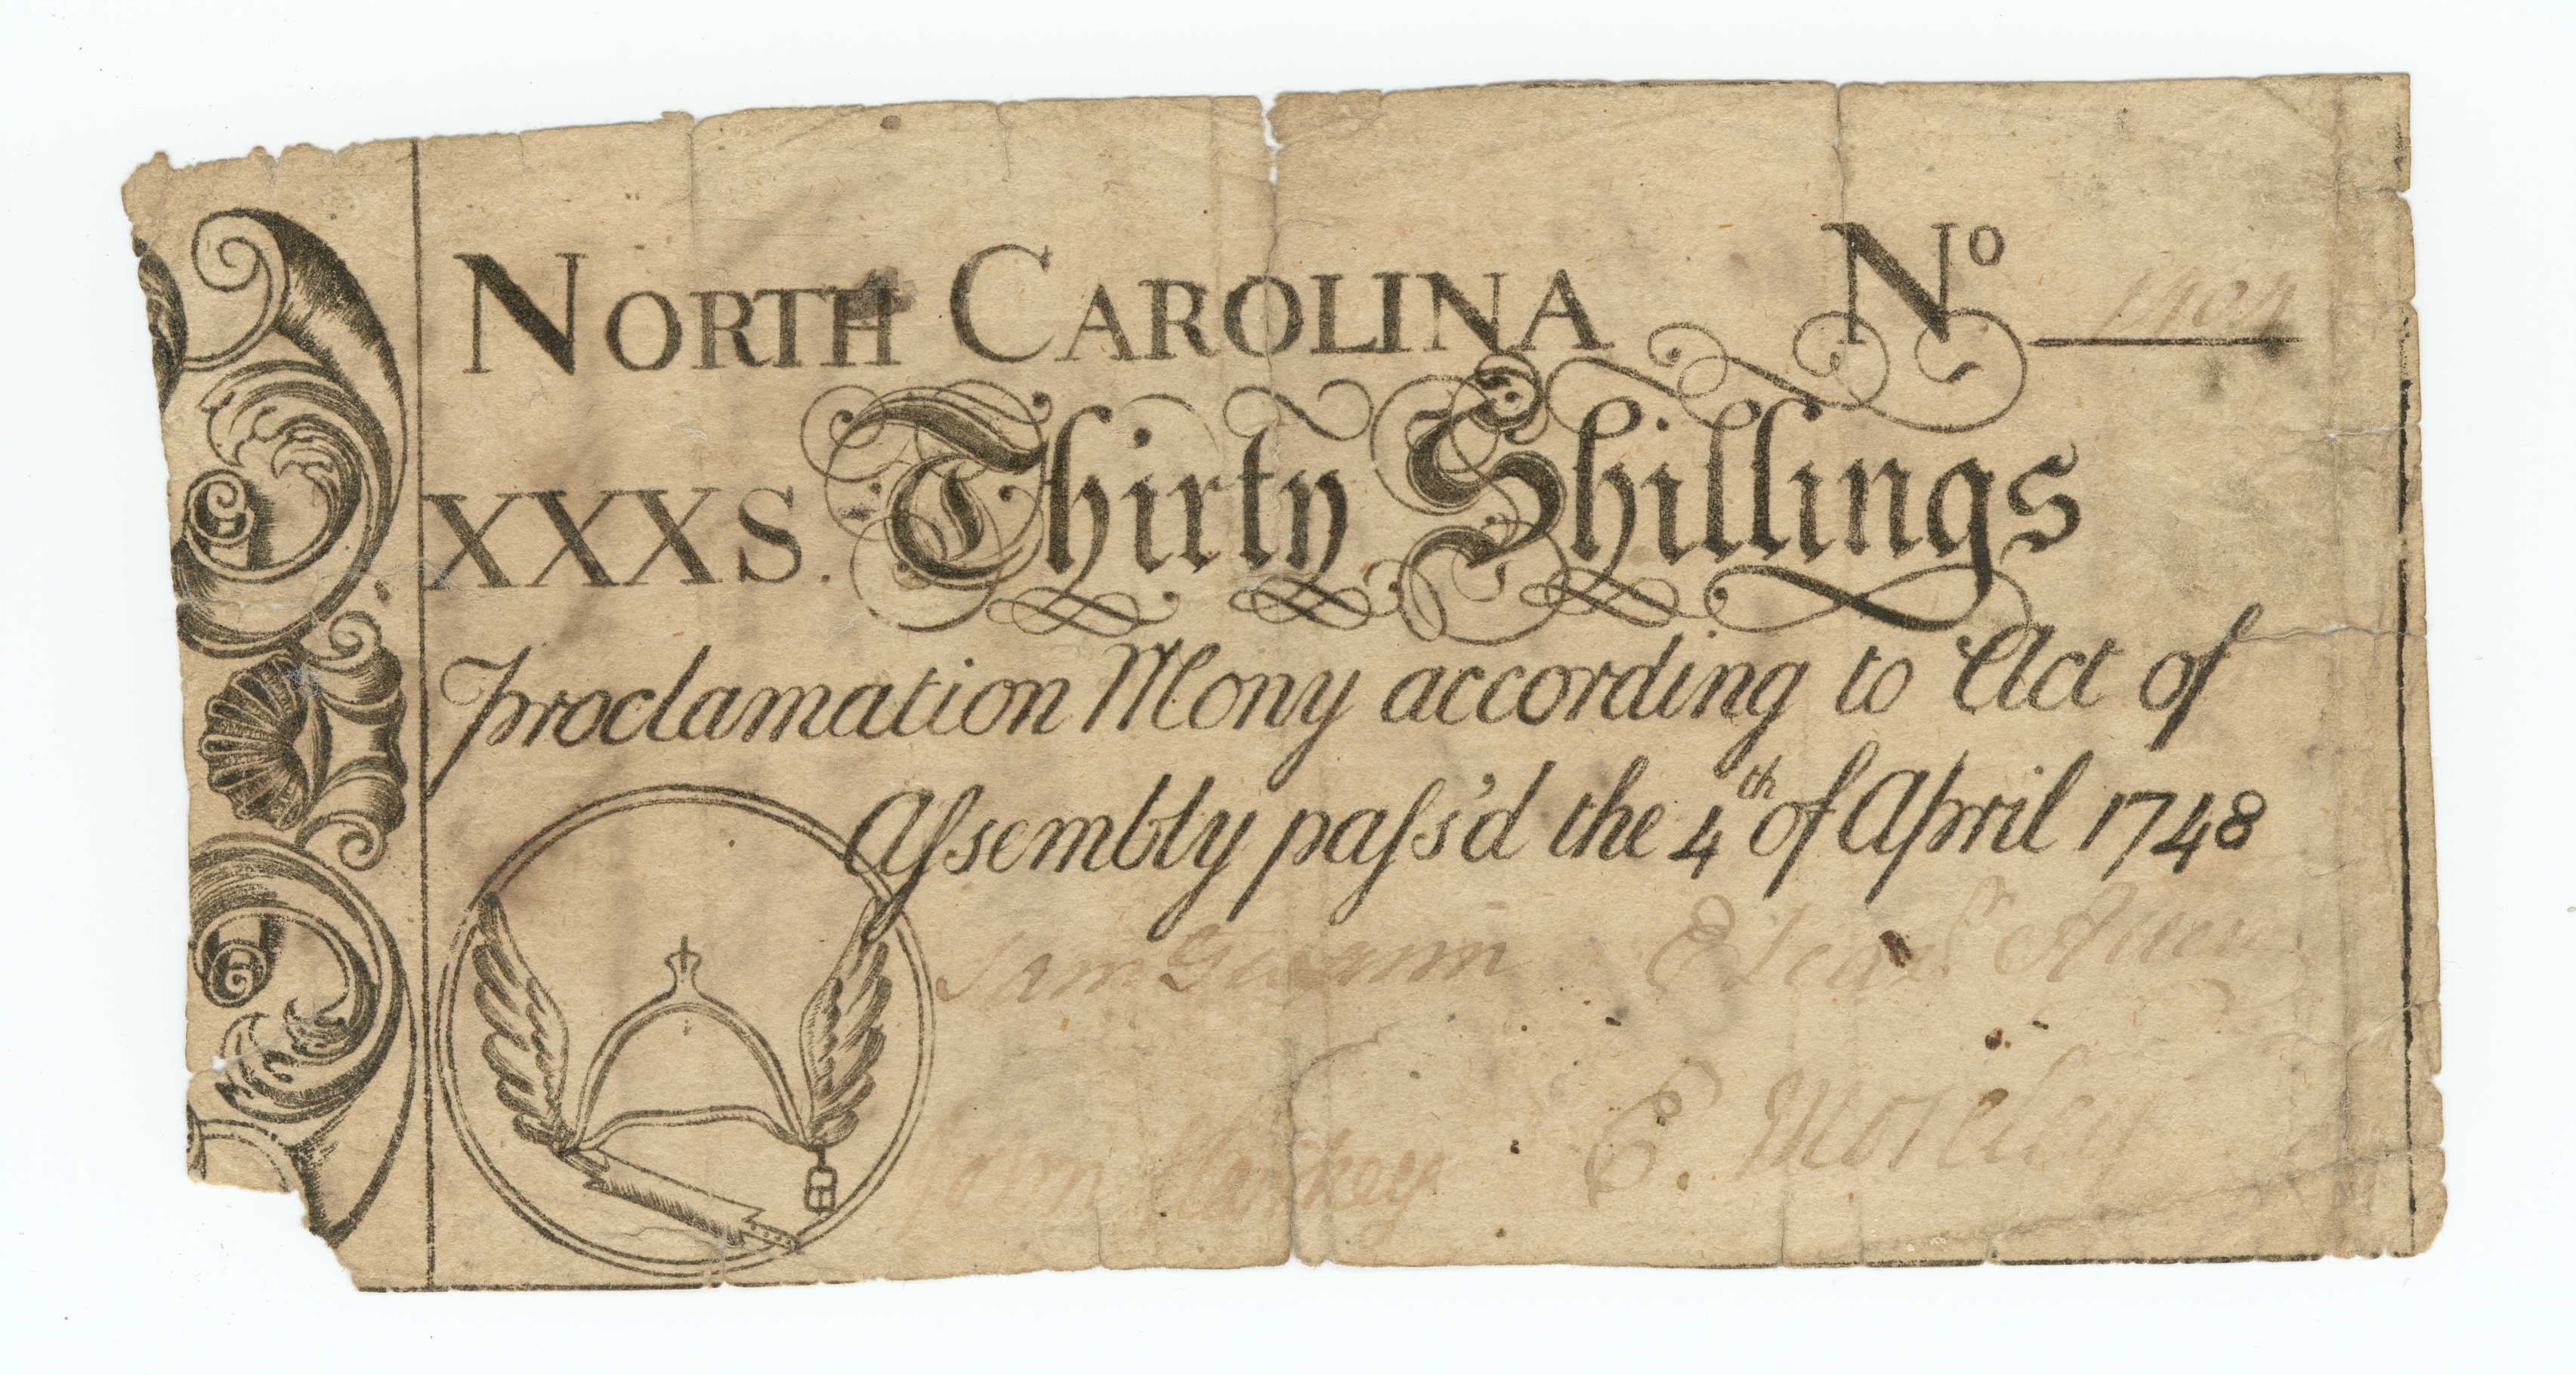 NORTH CAROLINA Nº
XXXS. Thirty Shillings
Proclamation Mony according to Act of
Aſsembly paſs'd the 4th of April 1748
Sam
John Starkey E. Moseley